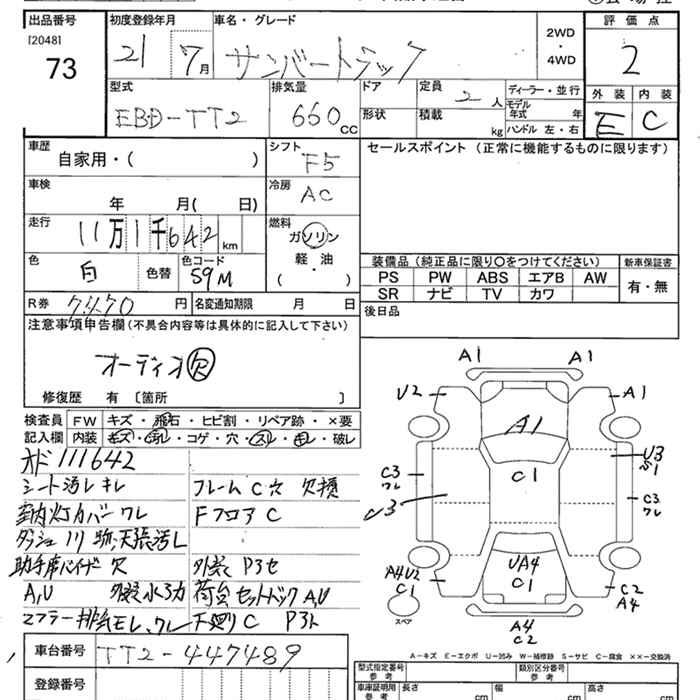 出品番号 初度登録年月 車名・グレード 評価点
[2048] 73
21 7月 サンバートラック 2WD・4WD 2
型式 排気量 ドア 定員 2人 ディーラー・並行 外装 内装
EBD-TT2 660cc 形状 積載 kg モデル年式 年 ハンドル 左・右 E C
車歴 シフト セールスポイント (正常に機能するものに限ります)
自家用・( ) F5
車検 冷房
年 月( 日) AC
走行 燃料
11万1千642km ガソリン
軽・油
色 色コード ( )
白 色替 59M
装備品 (純正品に限り○をつけてください) 新車保証書
PS PW ABS エアB AW 有・無
SR ナビ TV カワ
R券 7470円 名変通知期限 月 日 後日品
注意事項申告欄 (不具合内容等は具体的に記入して下さい)
オーディオ欠
修復歴 有 [箇所 ]
検査員 FW キズ・飛石・ヒビ割・リペア跡・×要
記入欄 内装 キズ・汚レ・コゲ・穴・スレ・キレ・破レ
オド111642
シート汚レキレ フレームC穴欠損
室内灯カバーワレ FフロアC
ダッシュ 天張汚レ
欠 外装 P3セ
A,U 荷台 A,U
マフラー排気モレ、ワレ 下廻りC P3ト
A1 A1
U2 A1
A1
U3
S1
C1
C3
ワレ
C3
ワレ
U3
A4U2
C1
UA4
C1
C2
A4
スペア
A4
C2
車台番号 TT2-447489
A-キズ E-エクボ U-凹み W-補修跡 S-サビ C-腐食 ××-交換済
登録番号
型式指定番号 参考 類別区分番号 参考
車庫証明用 参考 長さ cm 幅 cm 高さ cm